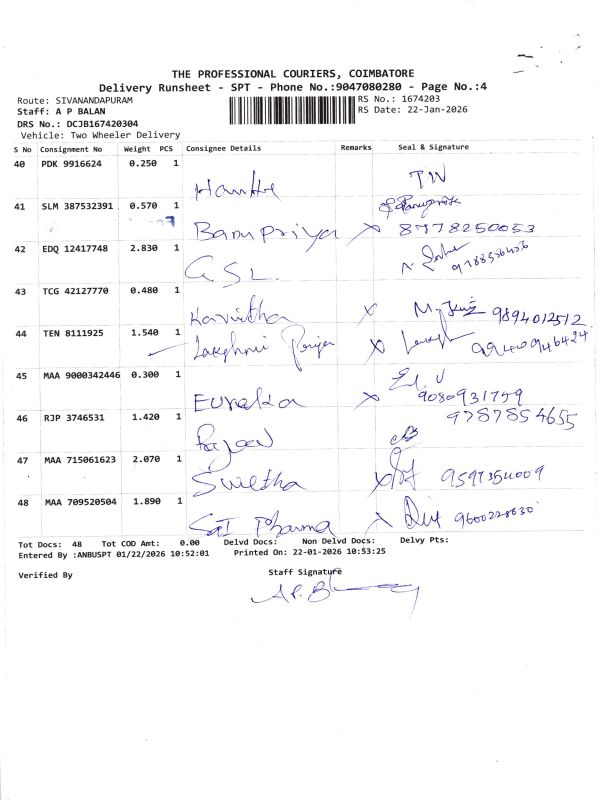 THE PROFESSIONAL COURIERS, COIMBATORE
Delivery Runsheet - SPT - Phone No.:9047080280 - Page No.:4
Route: SIVANANDAPURAM
RS No.: 1674203
Staff: A P BALAN
RS Date: 22-Jan-2026
DRS No.: DCJB167420304
Vehicle: Two Wheeler Delivery
S No Consignment No Weight PCS Consignee Details Remarks Seal & Signature
40 PDK 9916624 0.250 1 TW
41 SLM 387532391 0.570 1 Banupriya X 8778250053
42 EDQ 12417748 2.830 1 GSL
43 TCG 42127770 0.480 1 Kavitha X 9894012512
44 TEN 8111925 1.540 1 Lakshmi Priya X 9940946424
45 MAA 9000342446 0.300 1 Eureka X 9080931759
46 RJP 3746531 1.420 1 9787854655
47 MAA 715061623 2.070 1 Swetha X 9597354009
48 MAA 709520504 1.890 1 Sai Pharma X 9600228630
Tot Docs: 48 Tot COD Amt: 0.00 Delvd Docs: Non Delvd Docs: Delvy Pts:
Entered By :ANBUSPT 01/22/2026 10:52:01 Printed On: 22-01-2026 10:53:25
Verified By Staff Signature
A.P.B